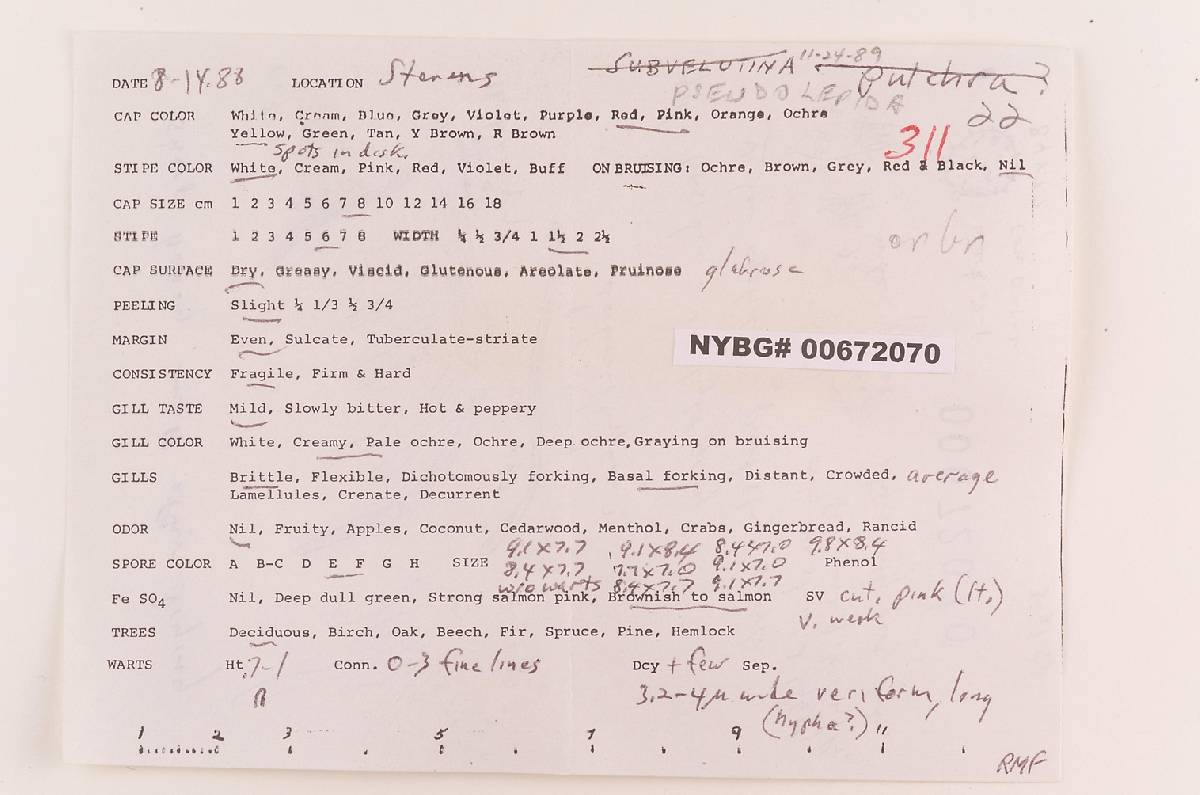 DATE 8-14.88 LOCATION Stevens SUBVELUTINA 11-24-89 Pulchra?
PSEUDOLEPIDA
22
CAP COLOR White, Cream, Blue, Grey, Violet, Purple, Red, Pink, Orange, Ochre
Yellow, Green, Tan, Y Brown, R Brown
spots in disk.
311
STIPE COLOR White, Cream, Pink, Red, Violet, Buff ON BRUISING: Ochre, Brown, Grey, Red & Black, Nil
CAP SIZE cm 1 2 3 4 5 6 7 8 10 12 14 16 18
STIPE 1 2 3 4 5 6 7 8 WIDTH ¼ ½ 3/4 1 1½ 2 2½
or br
CAP SURFACE Dry, Greasy, Viscid, Glutenous, Areolate, Pruinose glabrose
PEELING Slight ¼ 1/3 ½ 3/4
MARGIN Even, Sulcate, Tuberculate-striate
NYBG# 00672070
CONSISTENCY Fragile, Firm & Hard
GILL TASTE Mild, Slowly bitter, Hot & peppery
GILL COLOR White, Creamy, Pale ochre, Ochre, Deep ochre, Graying on bruising
GILLS Brittle, Flexible, Dichotomously forking, Basal forking, Distant, Crowded. average
Lamellules, Crenate, Decurrent
ODOR Nil, Fruity, Apples, Coconut, Cedarwood, Menthol, Crabs, Gingerbread, Rancid
9.1x7.7, 9.1x8.4 8.4x7.0 9.8x8.4
SPORE COLOR A B-C D E F G H SIZE 8.4x7.7 7.7x7.0 9.1x7.0 Phenol
w/o warts 8.4x7.7 9.1x7.7
Fe SO4 Nil, Deep dull green, Strong salmon pink, Brownish to salmon SV cut, pink (lt.)
v. weak
TREES Deciduous, Birch, Oak, Beech, Fir, Spruce, Pine, Hemlock
WARTS Ht .7-1 Conn. 0-3 fine lines Dcy + few Sep.
3.2-4µ wide veriform, long
(hypha?) "
1 2 3 5 7 9 11
RMF